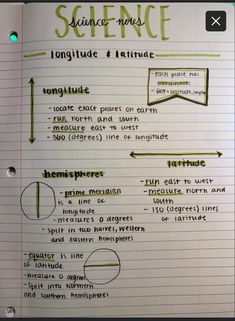 SCIENCE
science notes
longitude & latitude
- each place has
coordinates
longitude
- locate exact places on earth
- run north and south
- measure east to west
- 360 (degrees) line of longitude
latitude
- run east to west
- measure north and
south
- 180 (degrees) lines
of latitude
hemispheres
- prime meridian
is a line of
longitude
- measures 0 degrees
- split in two halves, western
and eastern hemispheres
- equator is line
of latitude
- measure 0 degrees
- split into northern
and southern hemispheres